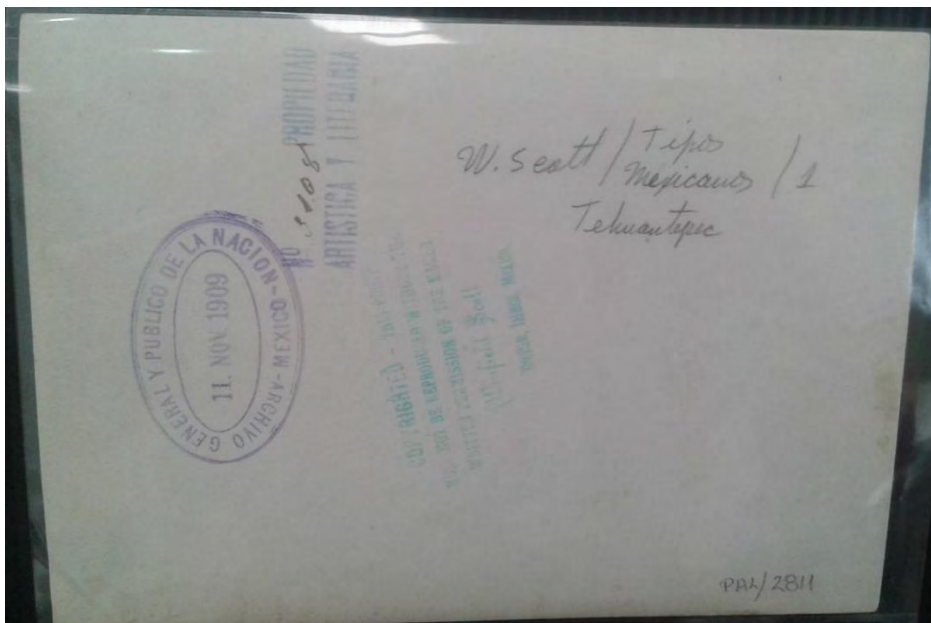 W. Scott / Tipos
Mexicanos / 1
Tehuantepec
PROPIEDAD
ARTISTICA Y LITERARIA
No
ARCHIVO GENERAL Y PUBLICO DE LA NACION - MEXICO -
11. NOV. 1909
COPYRIGHTED -
NOT BE REPRODUCED WITHOUT THE
WRITTEN PERMISSION OF THE
PAL/2811